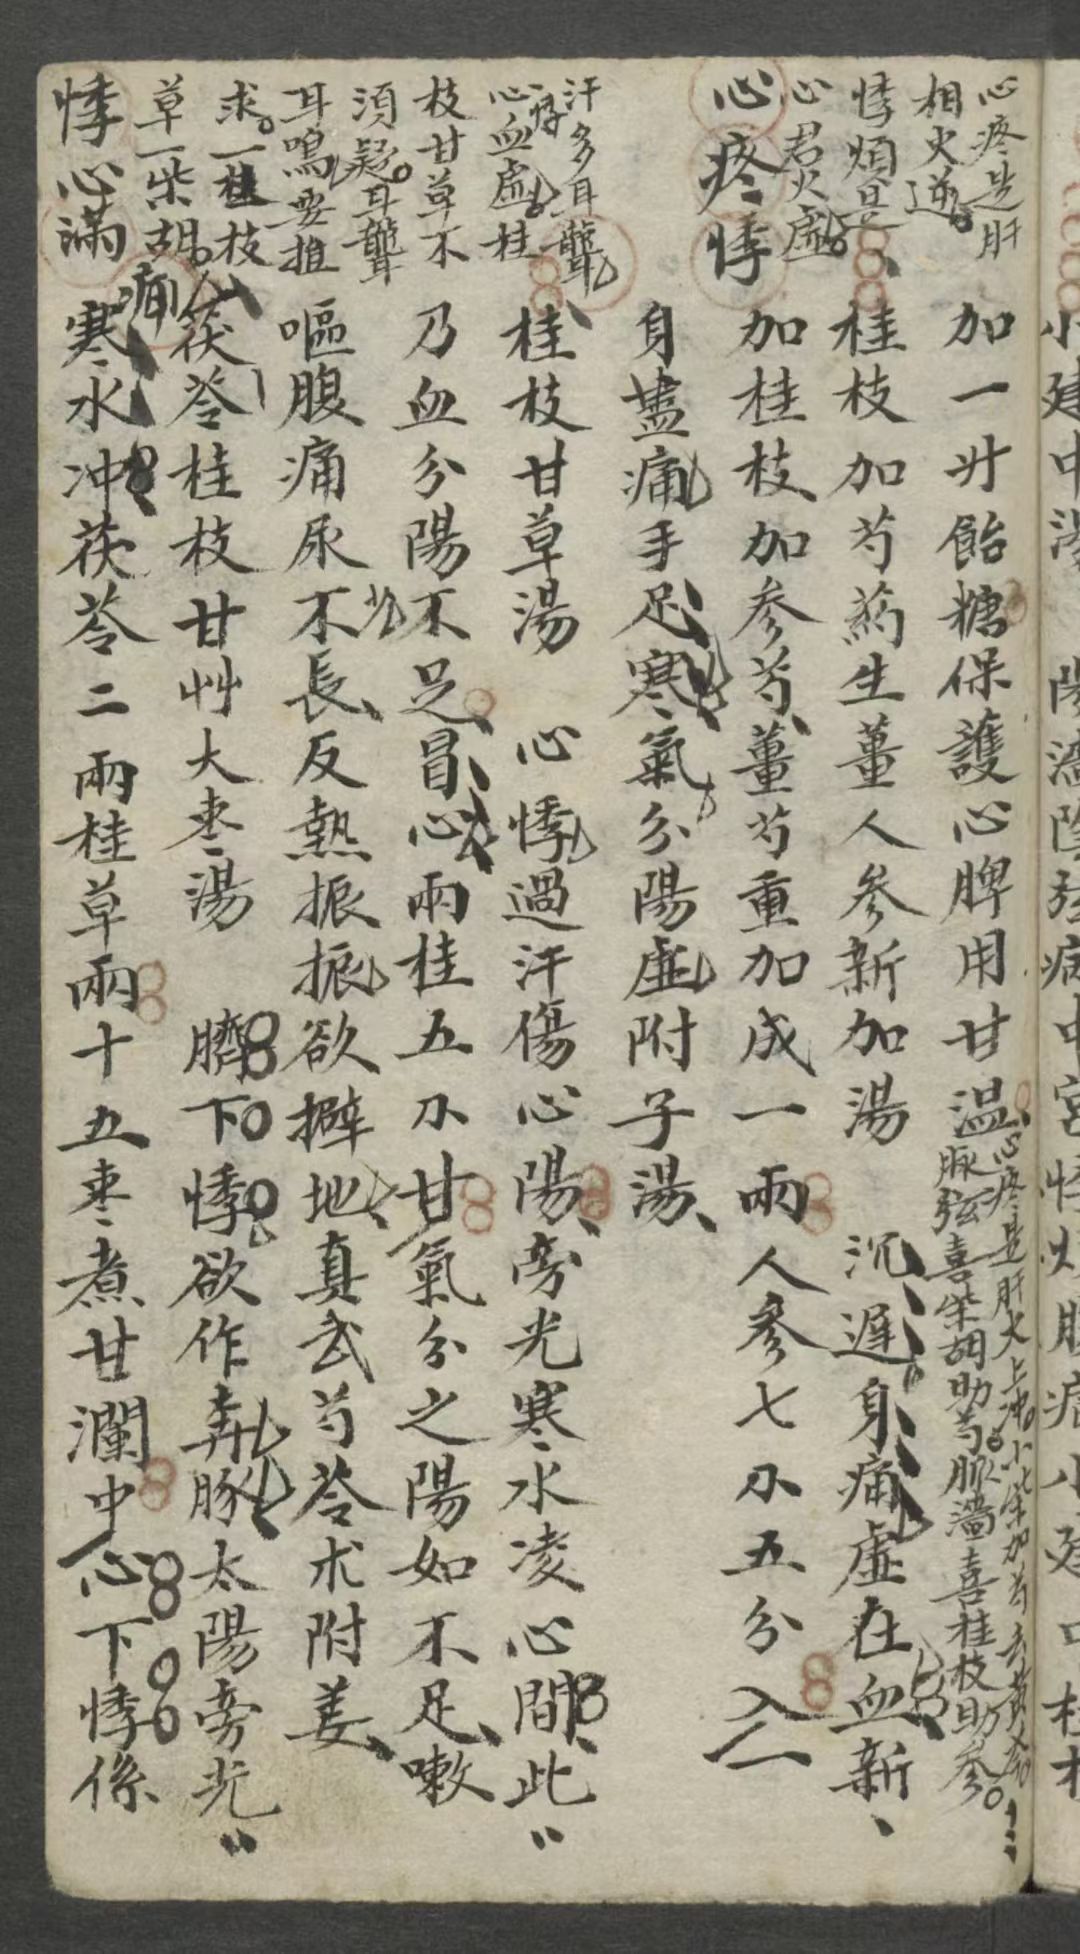 心疼是肝
相火逆
悸煩是
心君火虛
心疼悸
加一升飴糖保護心脾用甘温
心疼是肝火上冲小柴加芍去黄芩
脉弦喜柴胡助芍脈濇喜桂枝助參
桂枝加芍藥生薑人參新加湯 沉遲身痛虛在血新
加桂枝加參芍薑芍重加成一兩人參七分五分入
身盡痛手足寒氣分陽虛附子湯
汗多耳聾
心悸
心血虛桂
枝甘草不
須疑耳聾
耳鳴要推
求一桂枝
草一柴胡
悸心滿
桂枝甘草湯 心悸過汗傷心陽旁光寒水凌心間此
乃血分陽不足冒心兩桂五分甘氣分之陽如不足嗽
嘔腹痛尿不長反熱振振欲擗地真武芍苓朮附姜
茯苓桂枝甘艸大枣湯 臍下悸欲作奔豚太陽旁光
寒水冲茯苓二兩桂草兩十五枣煮甘瀾中心下悸係
小建中湯 陽濇陰弦病中宮悸煩腹痛小建中桂枝